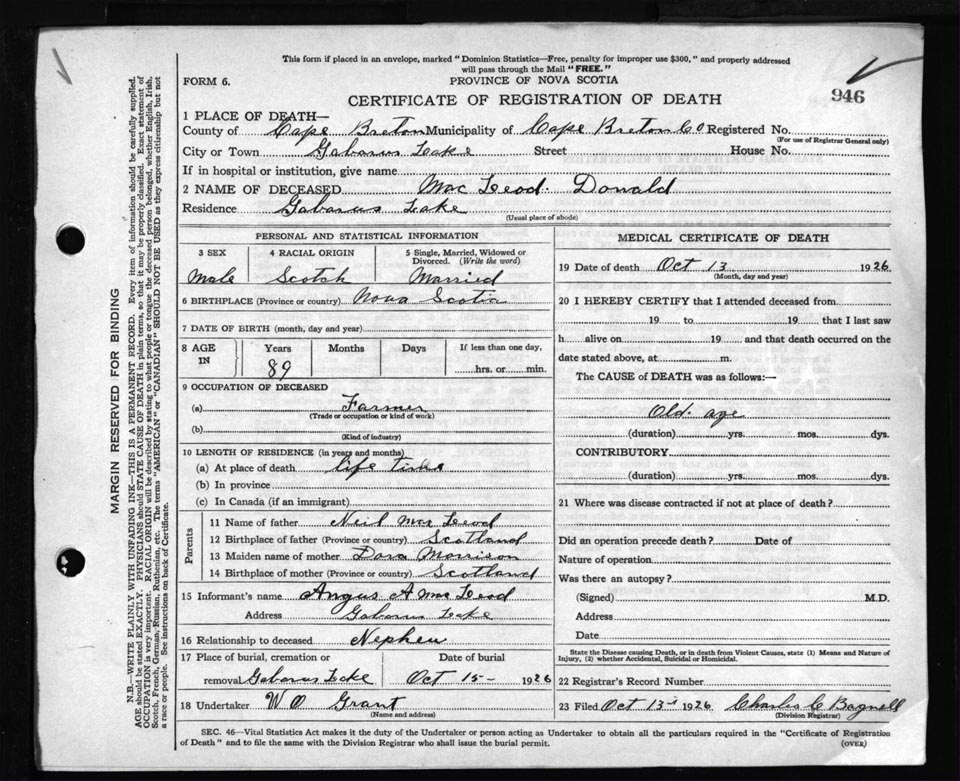 This form if placed in an envelope, marked "Dominion Statistics—Free, penalty for improper use $300," and properly addressed
will pass through the Mail "FREE."
FORM 6. PROVINCE OF NOVA SCOTIA
CERTIFICATE OF REGISTRATION OF DEATH 946
1 PLACE OF DEATH—
County of Cape Breton Municipality of Cape Breton Co Registered No.
(For use of Registrar General only)
City or Town Gabarus Lake Street House No.
If in hospital or institution, give name
2 NAME OF DECEASED Mac Leod Donald
Residence Gabarus Lake
(Usual place of abode)
PERSONAL AND STATISTICAL INFORMATION
3 SEX 4 RACIAL ORIGIN 5 Single, Married, Widowed or
Divorced. (Write the word)
Male Scotch Married
6 BIRTHPLACE (Province or country) Nova Scotia
7 DATE OF BIRTH (month, day and year)
8 AGE IN Years Months Days If less than one day,
89 hrs. or min.
9 OCCUPATION OF DECEASED
(a) Farmer
(Trade or occupation or kind of work)
(b)
(Kind of industry)
10 LENGTH OF RESIDENCE (in years and months)
(a) At place of death life time
(b) In province
(c) In Canada (if an immigrant)
Parents
11 Name of father Neil Mac Leod
12 Birthplace of father (Province or country) Scotland
13 Maiden name of mother Dora Morrison
14 Birthplace of mother (Province or country) Scotland
15 Informant's name Angus A Mac Leod
Address Gabarus Lake
16 Relationship to deceased Nephew
17 Place of burial, cremation or Date of burial
removal Gabarus Lake Oct 15- 1926
18 Undertaker W O Grant
(Name and address)
MEDICAL CERTIFICATE OF DEATH
19 Date of death Oct 13 1926
(Month, day and year)
20 I HEREBY CERTIFY that I attended deceased from
19 to 19 that I last saw
h alive on 19 and that death occurred on the
date stated above, at m.
The CAUSE of DEATH was as follows:—
Old age
(duration) yrs. mos. dys.
CONTRIBUTORY
(duration) yrs. mos. dys.
21 Where was disease contracted if not at place of death?
Did an operation precede death? Date of
Nature of operation
Was there an autopsy?
(Signed) M.D.
Address
Date
State the Disease causing Death, or in death from Violent Causes, state (1) Means and Nature of
Injury, (2) whether Accidental, Suicidal or Homicidal.
22 Registrar's Record Number
23 Filed Oct 13th 1926 Charles C Bagnell
(Division Registrar)
SEC. 46—Vital Statistics Act makes it the duty of the Undertaker or person acting as Undertaker to obtain all the particulars required in the "Certificate of Registration
of Death" and to file the same with the Division Registrar who shall issue the burial permit. (OVER)
MARGIN RESERVED FOR BINDING
N.B.—WRITE PLAINLY WITH UNFADING INK—THIS IS A PERMANENT RECORD. Every item of information should be carefully supplied.
AGE should be stated EXACTLY. PHYSICIANS should STATE CAUSE OF DEATH in plain terms, so that it may be properly classified. Exact statement of
OCCUPATION is very important. RACIAL ORIGIN will be described by stating to what people or tongue the deceased person belonged, whether English, Irish,
Scotch, French, German, Russian, Ruthenian, etc. The terms "AMERICAN" or "CANADIAN" SHOULD NOT BE USED as they express citizenship but not
a race or people. See instructions on back of Certificate.